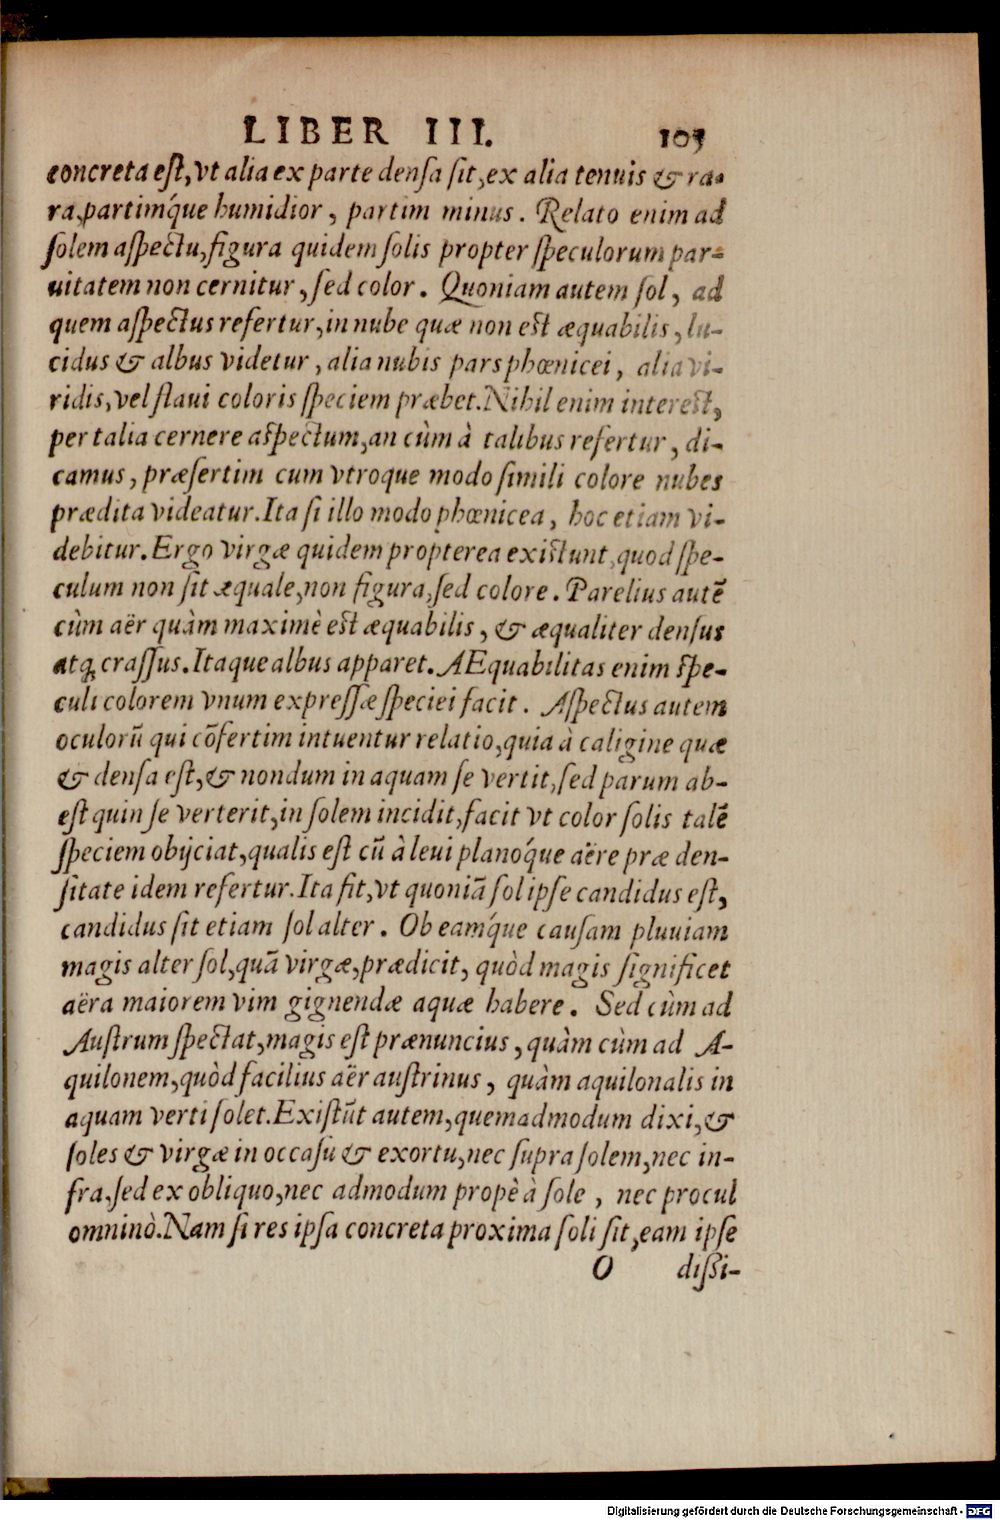 LIBER III. 105
concreta est, vt alia ex parte densa sit, ex alia tenuis & ra-
ra, partimq́ue humidior, partim minus. Relato enim ad
solem aspectu, figura quidem solis propter speculorum par-
uitatem non cernitur, sed color. Quoniam autem sol, ad
quem aspectus refertur, in nube quæ non est æquabilis, lu-
cidus & albus videtur, alia nubis pars phœnicei, alia vi-
ridis, vel flaui coloris speciem præbet. Nihil enim interest,
per talia cernere aspectum, an cùm à talibus refertur, di-
camus, præsertim cum vtroque modo simili colore nubes
prædita videatur. Ita si illo modo phœnicea, hoc etiam vi-
debitur. Ergo virgæ quidem propterea existunt, quod spe-
culum non sit æquale, non figura, sed colore. Parelius autē
cùm aër quàm maximè est æquabilis, & æqualiter densus
atq; crassus. Itaque albus apparet. AEquabilitas enim spe-
culi colorem vnum expressæ speciei facit. Aspectus autem
oculorū qui cōfertim intuentur relatio, quia à caligine quæ
& densa est, & nondum in aquam se vertit, sed parum ab-
est quin se verterit, in solem incidit, facit vt color solis talē
speciem obijciat, qualis est cū à leui planoq́ue aëre præ den-
sitate idem refertur. Ita fit, vt quoniā sol ipse candidus est,
candidus sit etiam sol alter. Ob eamq́ue causam pluuiam
magis alter sol, quā virgæ, prædicit, quòd magis significet
aëra maiorem vim gignendæ aquæ habere. Sed cùm ad
Austrum spectat, magis est prænuncius, quàm cùm ad A-
quilonem, quòd facilius aër austrinus, quàm aquilonalis in
aquam verti solet. Existūt autem, quemadmodum dixi, &
soles & virgæ in occasu & exortu, nec supra solem, nec in-
fra, sed ex obliquo, nec admodum propè à sole, nec procul
omninò. Nam si res ipsa concreta proxima soli sit, eam ipse
O dissi-
Digitalisierung gefördert durch die Deutsche Forschungsgemeinschaft - DFG